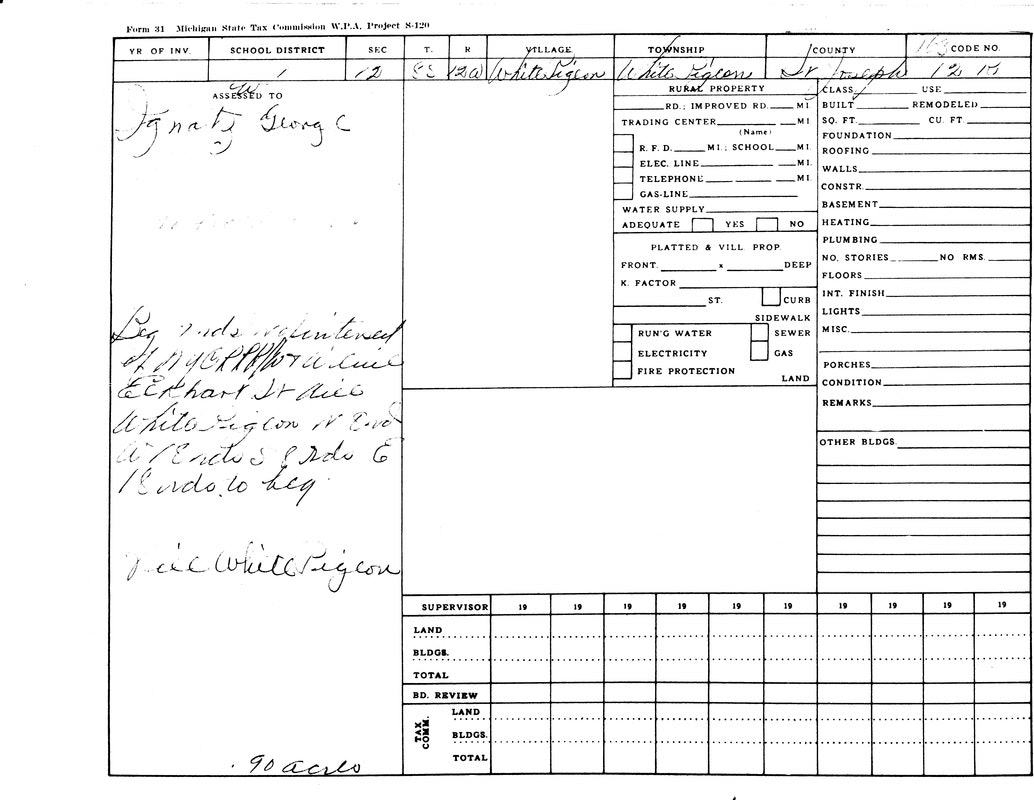 Form 31 Michigan State Tax Commission W.P.A. Project S-120
YR OF INV. SCHOOL DISTRICT SEC T. R VILLAGE TOWNSHIP COUNTY CODE NO.
1 12 8S 12W White Pigeon White Pigeon St Joseph 12
ASSESSED TO
George
Beg
Eckhart St
White Pigeon N End
8 rds E
18 rds to beg
White Pigeon
.90 acres
RURAL PROPERTY
RD.; IMPROVED RD. MI.
TRADING CENTER MI
(Name)
R. F. D. MI.; SCHOOL MI.
ELEC. LINE MI.
TELEPHONE MI.
GAS-LINE
WATER SUPPLY
ADEQUATE YES NO
PLATTED & VILL. PROP.
FRONT. x DEEP
K. FACTOR
ST. CURB
SIDEWALK
RUN'G WATER SEWER
ELECTRICITY GAS
FIRE PROTECTION
LAND
CLASS USE
BUILT REMODELED
SQ. FT. CU. FT.
FOUNDATION
ROOFING
WALLS
CONSTR.
BASEMENT
HEATING
PLUMBING
NO. STORIES NO RMS.
FLOORS
INT. FINISH
LIGHTS
MISC.
PORCHES
CONDITION
REMARKS
OTHER BLDGS.
SUPERVISOR 19 19 19 19 19 19 19 19 19 19
LAND
BLDGS.
TOTAL
BD. REVIEW
TAX COMM.
LAND
BLDGS.
TOTAL